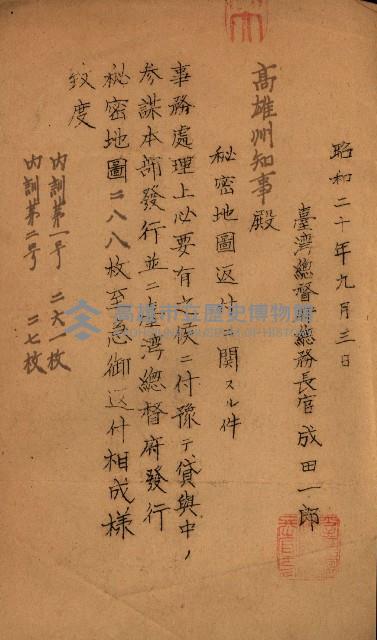 昭和二十年九月三日
臺灣總督府總務長官成田一郎
高雄州知事殿
秘密地圖返付ニ関スル件
事務處理上必要有之候ニ付豫テ貸與中ノ
参謀本部發行並ニ臺湾總督府發行
秘密地圖二八八枚至急御返付相成様
致度
内訓第一号 二六一枚
内訓第二号 二七枚
高雄市立歷史博物館